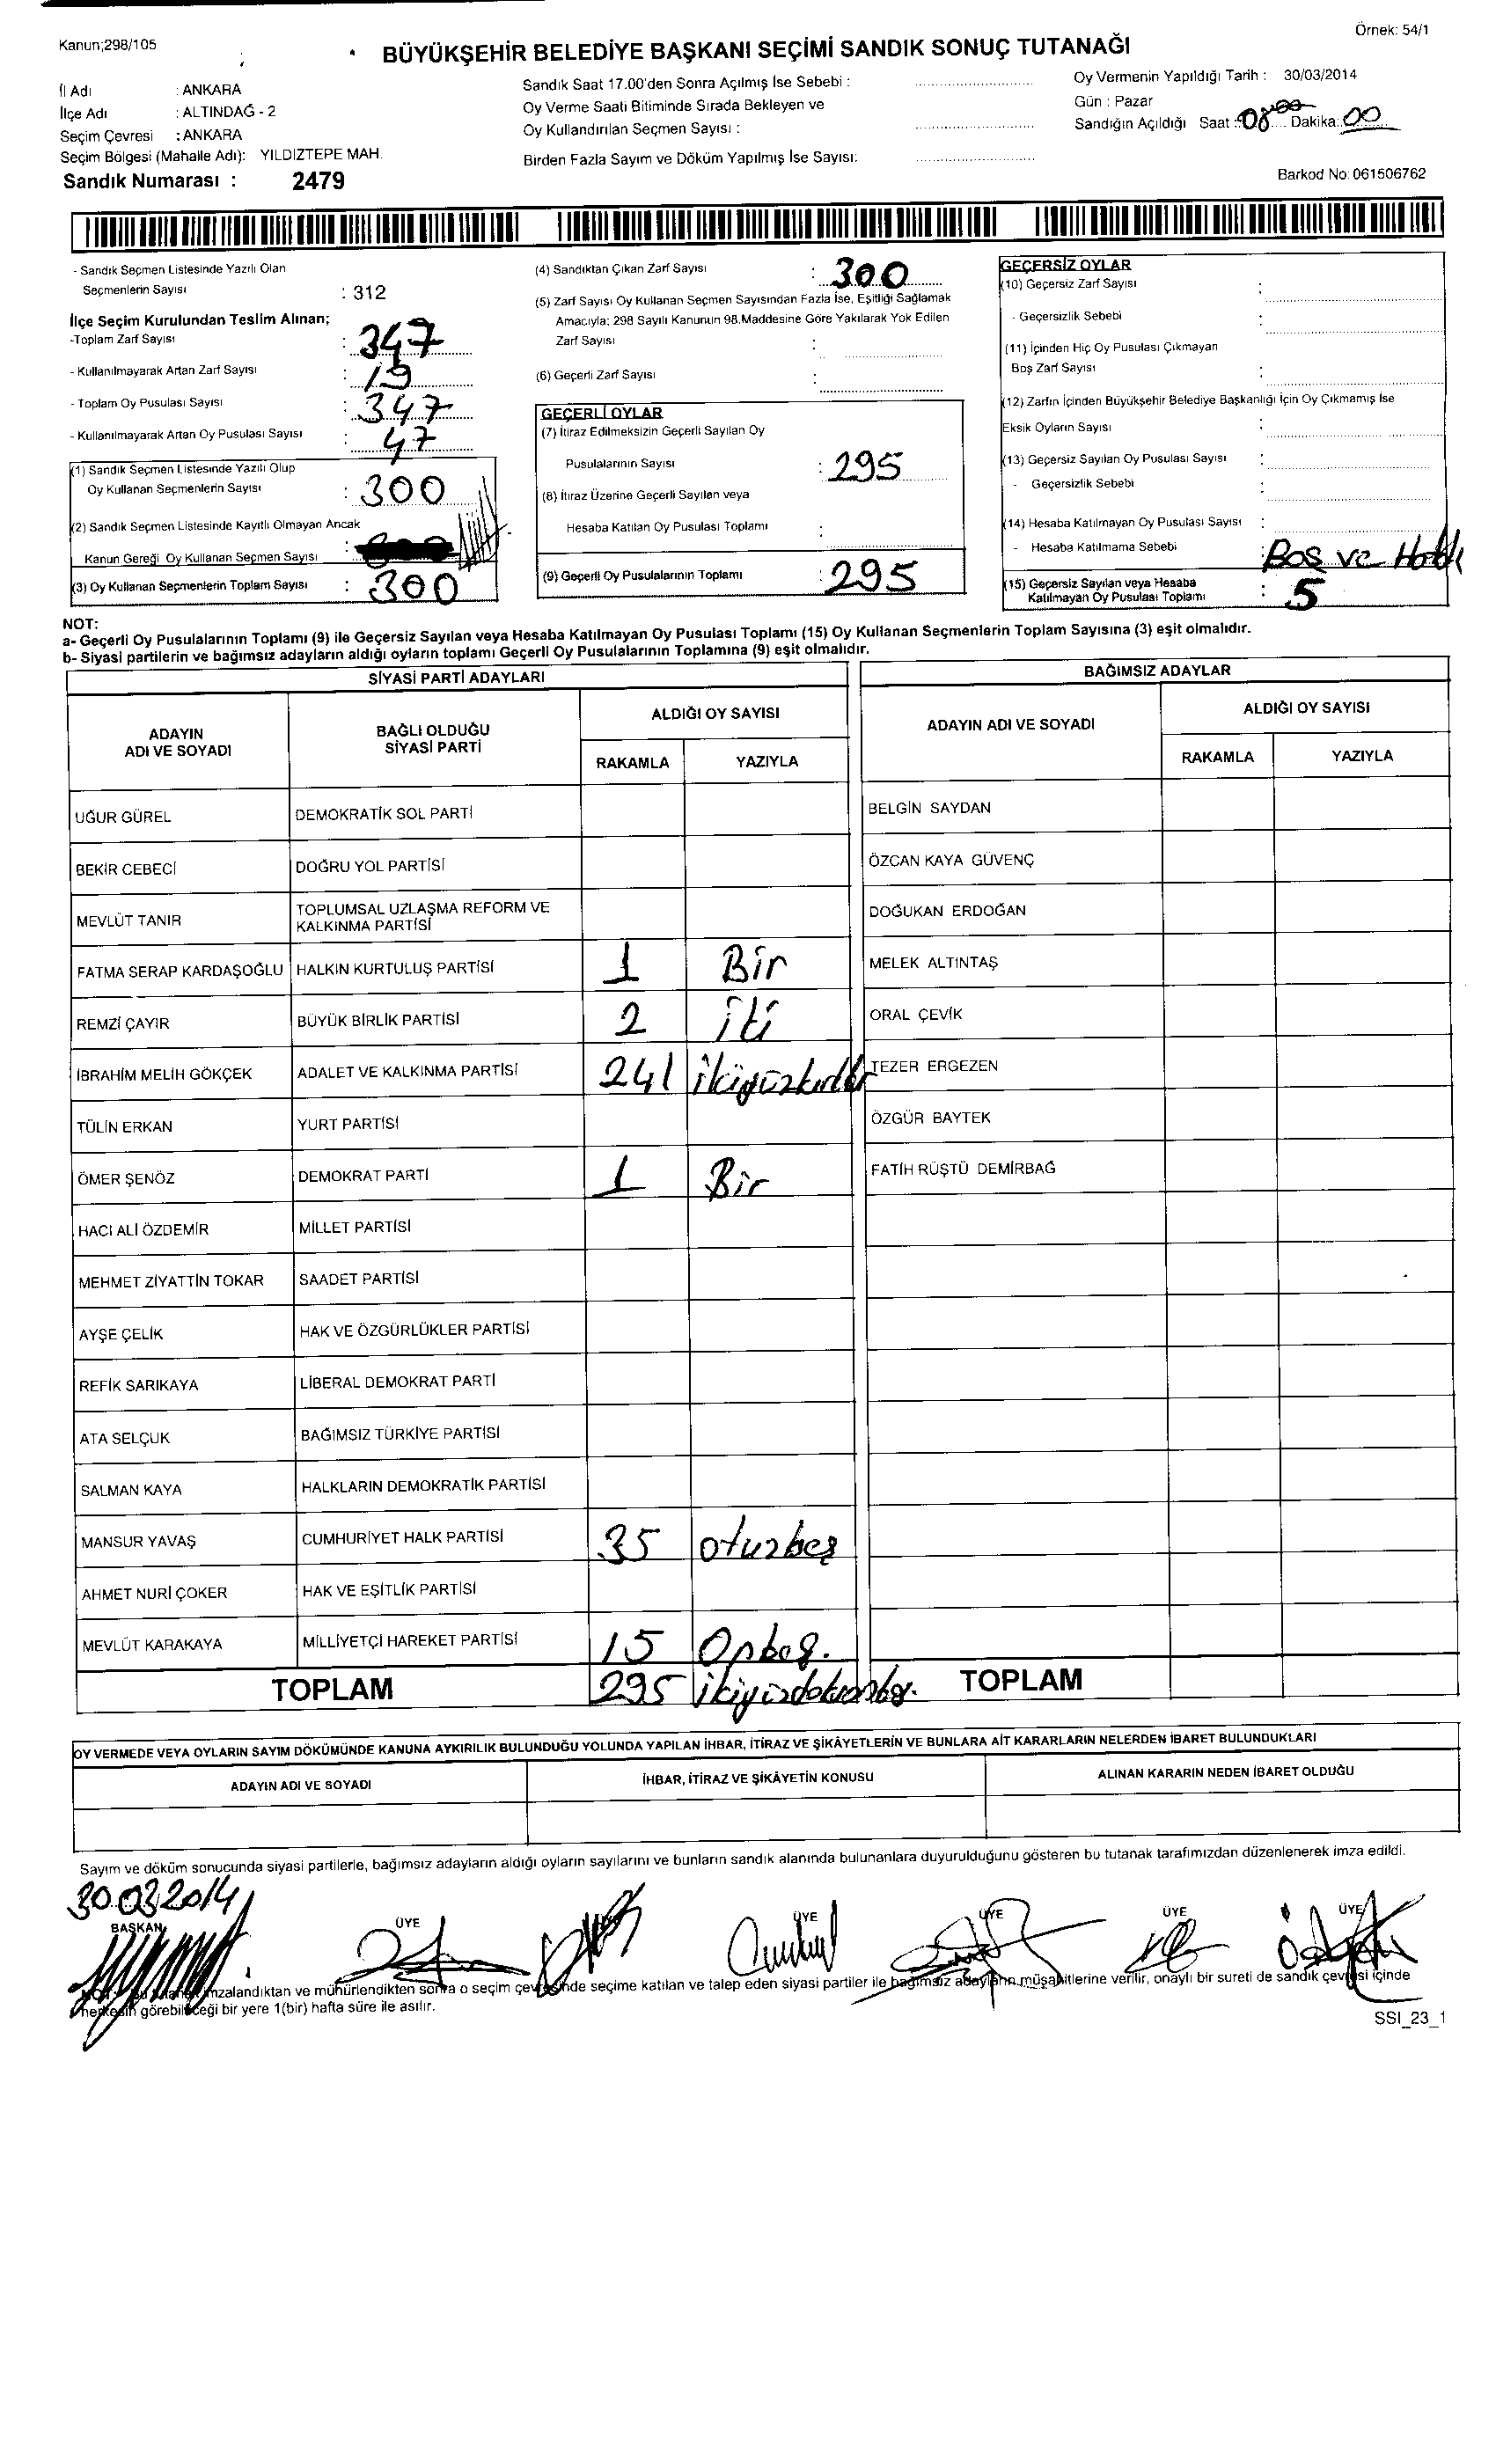 Kanun;298/105
Örnek: 54/1
BÜYÜKŞEHİR BELEDİYE BAŞKANI SEÇİMİ SANDIK SONUÇ TUTANAĞI
İl Adı : ANKARA
İlçe Adı : ALTINDAĞ - 2
Seçim Çevresi : ANKARA
Seçim Bölgesi (Mahalle Adı): YILDIZTEPE MAH.
Sandık Numarası : 2479
Sandık Saat 17.00'den Sonra Açılmış İse Sebebi :
Oy Verme Saati Bitiminde Sırada Bekleyen ve
Oy Kullandırılan Seçmen Sayısı :
Birden Fazla Sayım ve Döküm Yapılmış İse Sayısı:
Oy Vermenin Yapıldığı Tarih : 30/03/2014
Gün : Pazar
Sandığın Açıldığı Saat : 08 Dakika: 00
Barkod No: 061506762
- Sandık Seçmen Listesinde Yazılı Olan
Seçmenlerin Sayısı : 312
İlçe Seçim Kurulundan Teslim Alınan;
-Toplam Zarf Sayısı : 347
- Kullanılmayarak Artan Zarf Sayısı : 19
- Toplam Oy Pusulası Sayısı : 347
- Kullanılmayarak Artan Oy Pusulası Sayısı : 47
(1) Sandık Seçmen Listesinde Yazılı Olup
Oy Kullanan Seçmenlerin Sayısı : 300
(2) Sandık Seçmen Listesinde Kayıtlı Olmayan Ancak
Kanun Gereği Oy Kullanan Seçmen Sayısı :
(3) Oy Kullanan Seçmenlerin Toplam Sayısı : 300
(4) Sandıktan Çıkan Zarf Sayısı : 300
(5) Zarf Sayısı Oy Kullanan Seçmen Sayısından Fazla İse, Eşitliği Sağlamak
Amacıyla; 298 Sayılı Kanunun 98.Maddesine Göre Yakılarak Yok Edilen
Zarf Sayısı :
(6) Geçerli Zarf Sayısı :
GEÇERLİ OYLAR
(7) İtiraz Edilmeksizin Geçerli Sayılan Oy
Pusulalarının Sayısı : 295
(8) İtiraz Üzerine Geçerli Sayılan veya
Hesaba Katılan Oy Pusulası Toplamı :
(9) Geçerli Oy Pusulalarının Toplamı : 295
GEÇERSİZ OYLAR
(10) Geçersiz Zarf Sayısı :
- Geçersizlik Sebebi :
(11) İçinden Hiç Oy Pusulası Çıkmayan
Boş Zarf Sayısı :
(12) Zarfın İçinden Büyükşehir Belediye Başkanlığı İçin Oy Çıkmamış İse
Eksik Oyların Sayısı :
(13) Geçersiz Sayılan Oy Pusulası Sayısı :
- Geçersizlik Sebebi :
(14) Hesaba Katılmayan Oy Pusulası Sayısı :
- Hesaba Katılmama Sebebi : Boş ve
(15) Geçersiz Sayılan veya Hesaba
Katılmayan Oy Pusulası Toplamı : 5
NOT:
a- Geçerli Oy Pusulalarının Toplamı (9) ile Geçersiz Sayılan veya Hesaba Katılmayan Oy Pusulası Toplamı (15) Oy Kullanan Seçmenlerin Toplam Sayısına (3) eşit olmalıdır.
b- Siyasi partilerin ve bağımsız adayların aldığı oyların toplamı Geçerli Oy Pusulalarının Toplamına (9) eşit olmalıdır.
SİYASİ PARTİ ADAYLARI
ADAYIN
ADI VE SOYADI
BAĞLI OLDUĞU
SİYASİ PARTİ
ALDIĞI OY SAYISI
RAKAMLA YAZIYLA
UĞUR GÜREL DEMOKRATİK SOL PARTİ
BEKİR CEBECİ DOĞRU YOL PARTİSİ
MEVLÜT TANIR TOPLUMSAL UZLAŞMA REFORM VE
KALKINMA PARTİSİ
FATMA SERAP KARDAŞOĞLU HALKIN KURTULUŞ PARTİSİ 1 Bir
REMZİ ÇAYIR BÜYÜK BİRLİK PARTİSİ 2 iki
İBRAHİM MELİH GÖKÇEK ADALET VE KALKINMA PARTİSİ 241 ikiyüzkırkbir
TÜLİN ERKAN YURT PARTİSİ
ÖMER ŞENÖZ DEMOKRAT PARTİ 1 Bir
HACI ALİ ÖZDEMİR MİLLET PARTİSİ
MEHMET ZİYATTİN TOKAR SAADET PARTİSİ
AYŞE ÇELİK HAK VE ÖZGÜRLÜKLER PARTİSİ
REFİK SARIKAYA LİBERAL DEMOKRAT PARTİ
ATA SELÇUK BAĞIMSIZ TÜRKİYE PARTİSİ
SALMAN KAYA HALKLARIN DEMOKRATİK PARTİSİ
MANSUR YAVAŞ CUMHURİYET HALK PARTİSİ 35 oturbeş
AHMET NURİ ÇOKER HAK VE EŞİTLİK PARTİSİ
MEVLÜT KARAKAYA MİLLİYETÇİ HAREKET PARTİSİ 15 Onbeş.
TOPLAM 295 ikiyüzdoksanbeş.
BAĞIMSIZ ADAYLAR
ADAYIN ADI VE SOYADI
ALDIĞI OY SAYISI
RAKAMLA YAZIYLA
BELGİN SAYDAN
ÖZCAN KAYA GÜVENÇ
DOĞUKAN ERDOĞAN
MELEK ALTINTAŞ
ORAL ÇEVİK
TEZER ERGEZEN
ÖZGÜR BAYTEK
FATİH RÜŞTÜ DEMİRBAĞ
TOPLAM
OY VERMEDE VEYA OYLARIN SAYIM DÖKÜMÜNDE KANUNA AYKIRILIK BULUNDUĞU YOLUNDA YAPILAN İHBAR, İTİRAZ VE ŞİKÂYETLERİN VE BUNLARA AİT KARARLARIN NELERDEN İBARET BULUNDUKLARI
ADAYIN ADI VE SOYADI İHBAR, İTİRAZ VE ŞİKÂYETİN KONUSU ALINAN KARARIN NEDEN İBARET OLDUĞU
Sayım ve döküm sonucunda siyasi partilerle, bağımsız adayların aldığı oyların sayılarını ve bunların sandık alanında bulunanlara duyurulduğunu gösteren bu tutanak tarafımızdan düzenlenerek imza edildi.
30.03.2014
BAŞKAN ÜYE ÜYE ÜYE ÜYE ÜYE
imzalandıktan ve mühürlendikten sonra o seçim çevresinde seçime katılan ve talep eden siyasi partiler ile bağımsız adayların müşahitlerine verilir, onaylı bir sureti de sandık çevresi içinde
herkesin görebileceği bir yere 1(bir) hafta süre ile asılır.
SSI_23_1